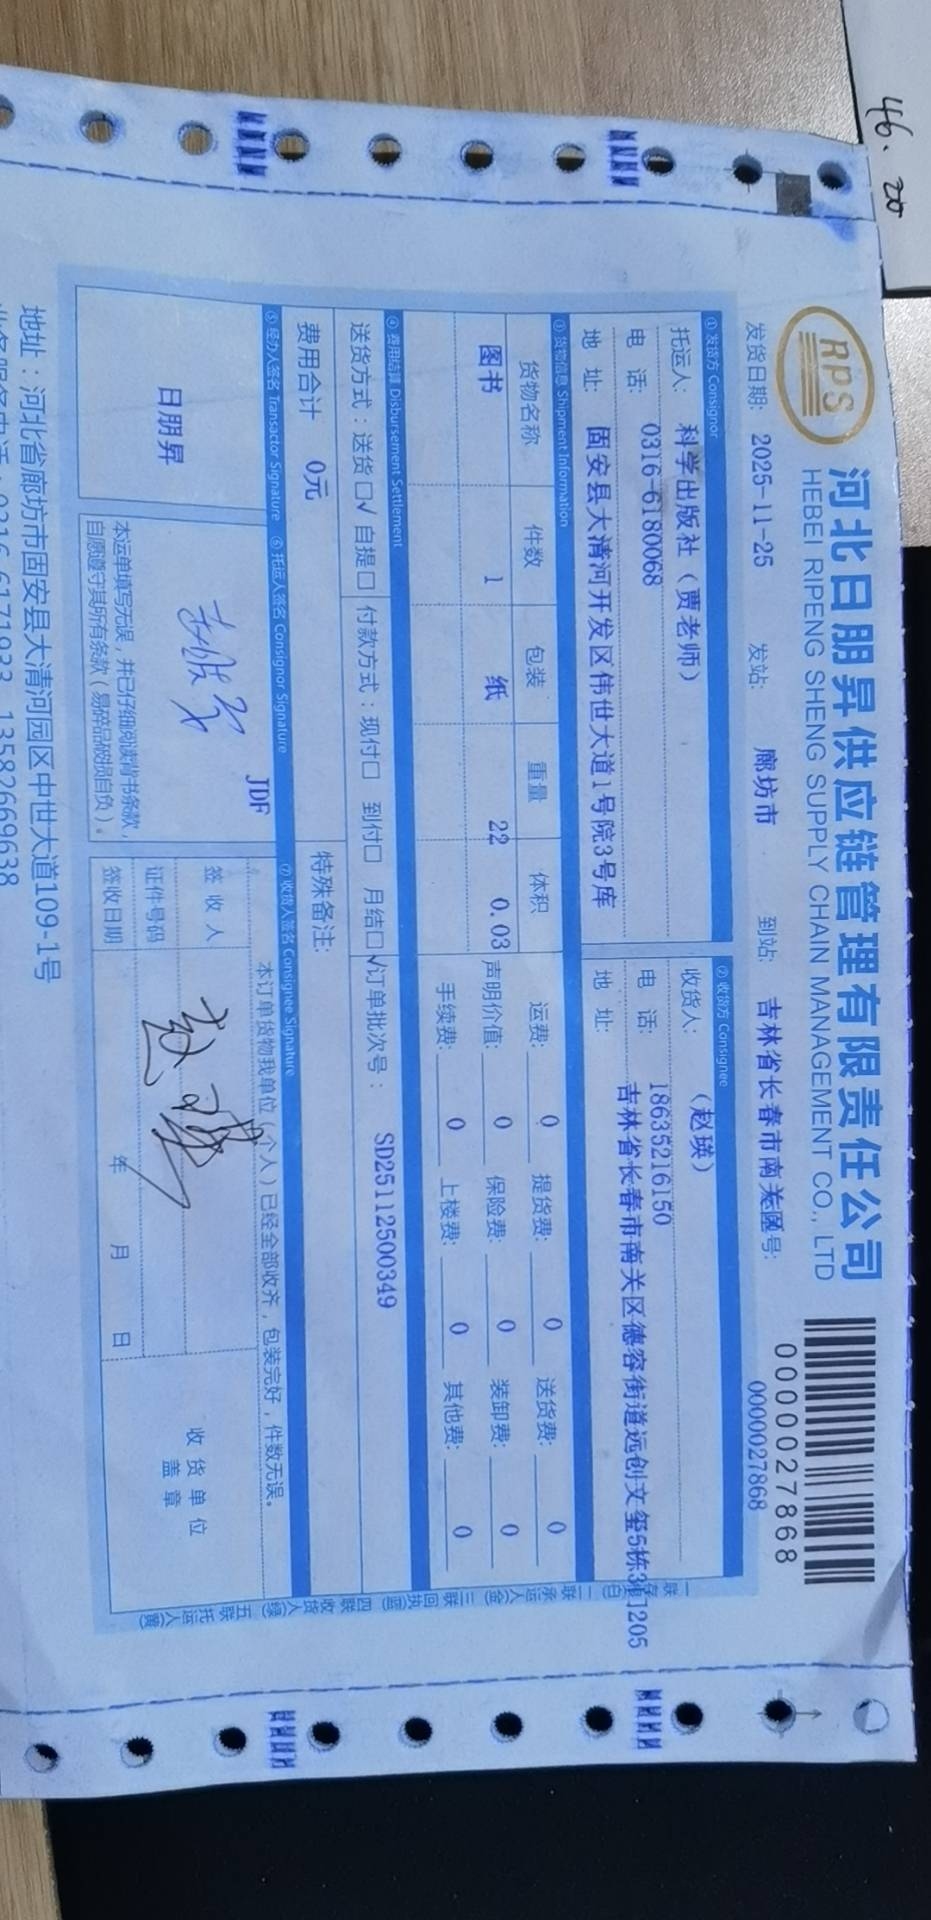 46.20
RPS
河北日朋昇供应链管理有限责任公司
HEBEI RIPENG SHENG SUPPLY CHAIN MANAGEMENT CO., LTD
0000027868
0000027868
发货日期: 2025-11-25 发站: 廊坊市 到站: 吉林省长春市南关区 号:
① 发货方 Consignor
托运人: 科学出版社（贾老师）
电 话: 0316-6180068
地 址: 固安县大清河开发区伟世大道1号院3号库
② 收货方 Consignee
收货人: （赵瑛）
电 话: 18635216150
地 址: 吉林省长春市南关区德容街道远创文玺5栋3单1205
③ 货物信息 Shipment Information
货物名称 件数 包装 重量 体积
图书 1 纸 22 0.03
运费: 0 提货费: 0 送货费: 0
声明价值: 0 保险费: 0 装卸费: 0
手续费: 0 上楼费: 0 其他费: 0
④ 费用结算 Disbursement Settlement
送货方式：送货□√ 自提□ 付款方式：现付□ 到付□ 月结□√ 订单批次号： SD25112500349
费用合计 0元 特殊备注:
⑤ 经办人签名 Transactor Signature ⑥ 托运人签名 Consignor Signature ⑦ 收货人签名 Consignee Signature
日朋昇
JDF
本运单填写无误，并已仔细阅读背书条款，
自愿遵守其所有条款（易碎品破损自负）。
本订单货物我单位（个人）已经全部收齐，包装完好，件数无误。
签 收 人 赵瑛
证件号码
签收日期 年 月 日
收 货 单 位
盖 章
一联存根(白) 二联承运人(金) 三联回执(蓝) 四联收货人(绿) 五联托运人(黄)
地址：河北省廊坊市固安县大清河园区中世大道109-1号
业务服务电话：0316-6171933 13582669638